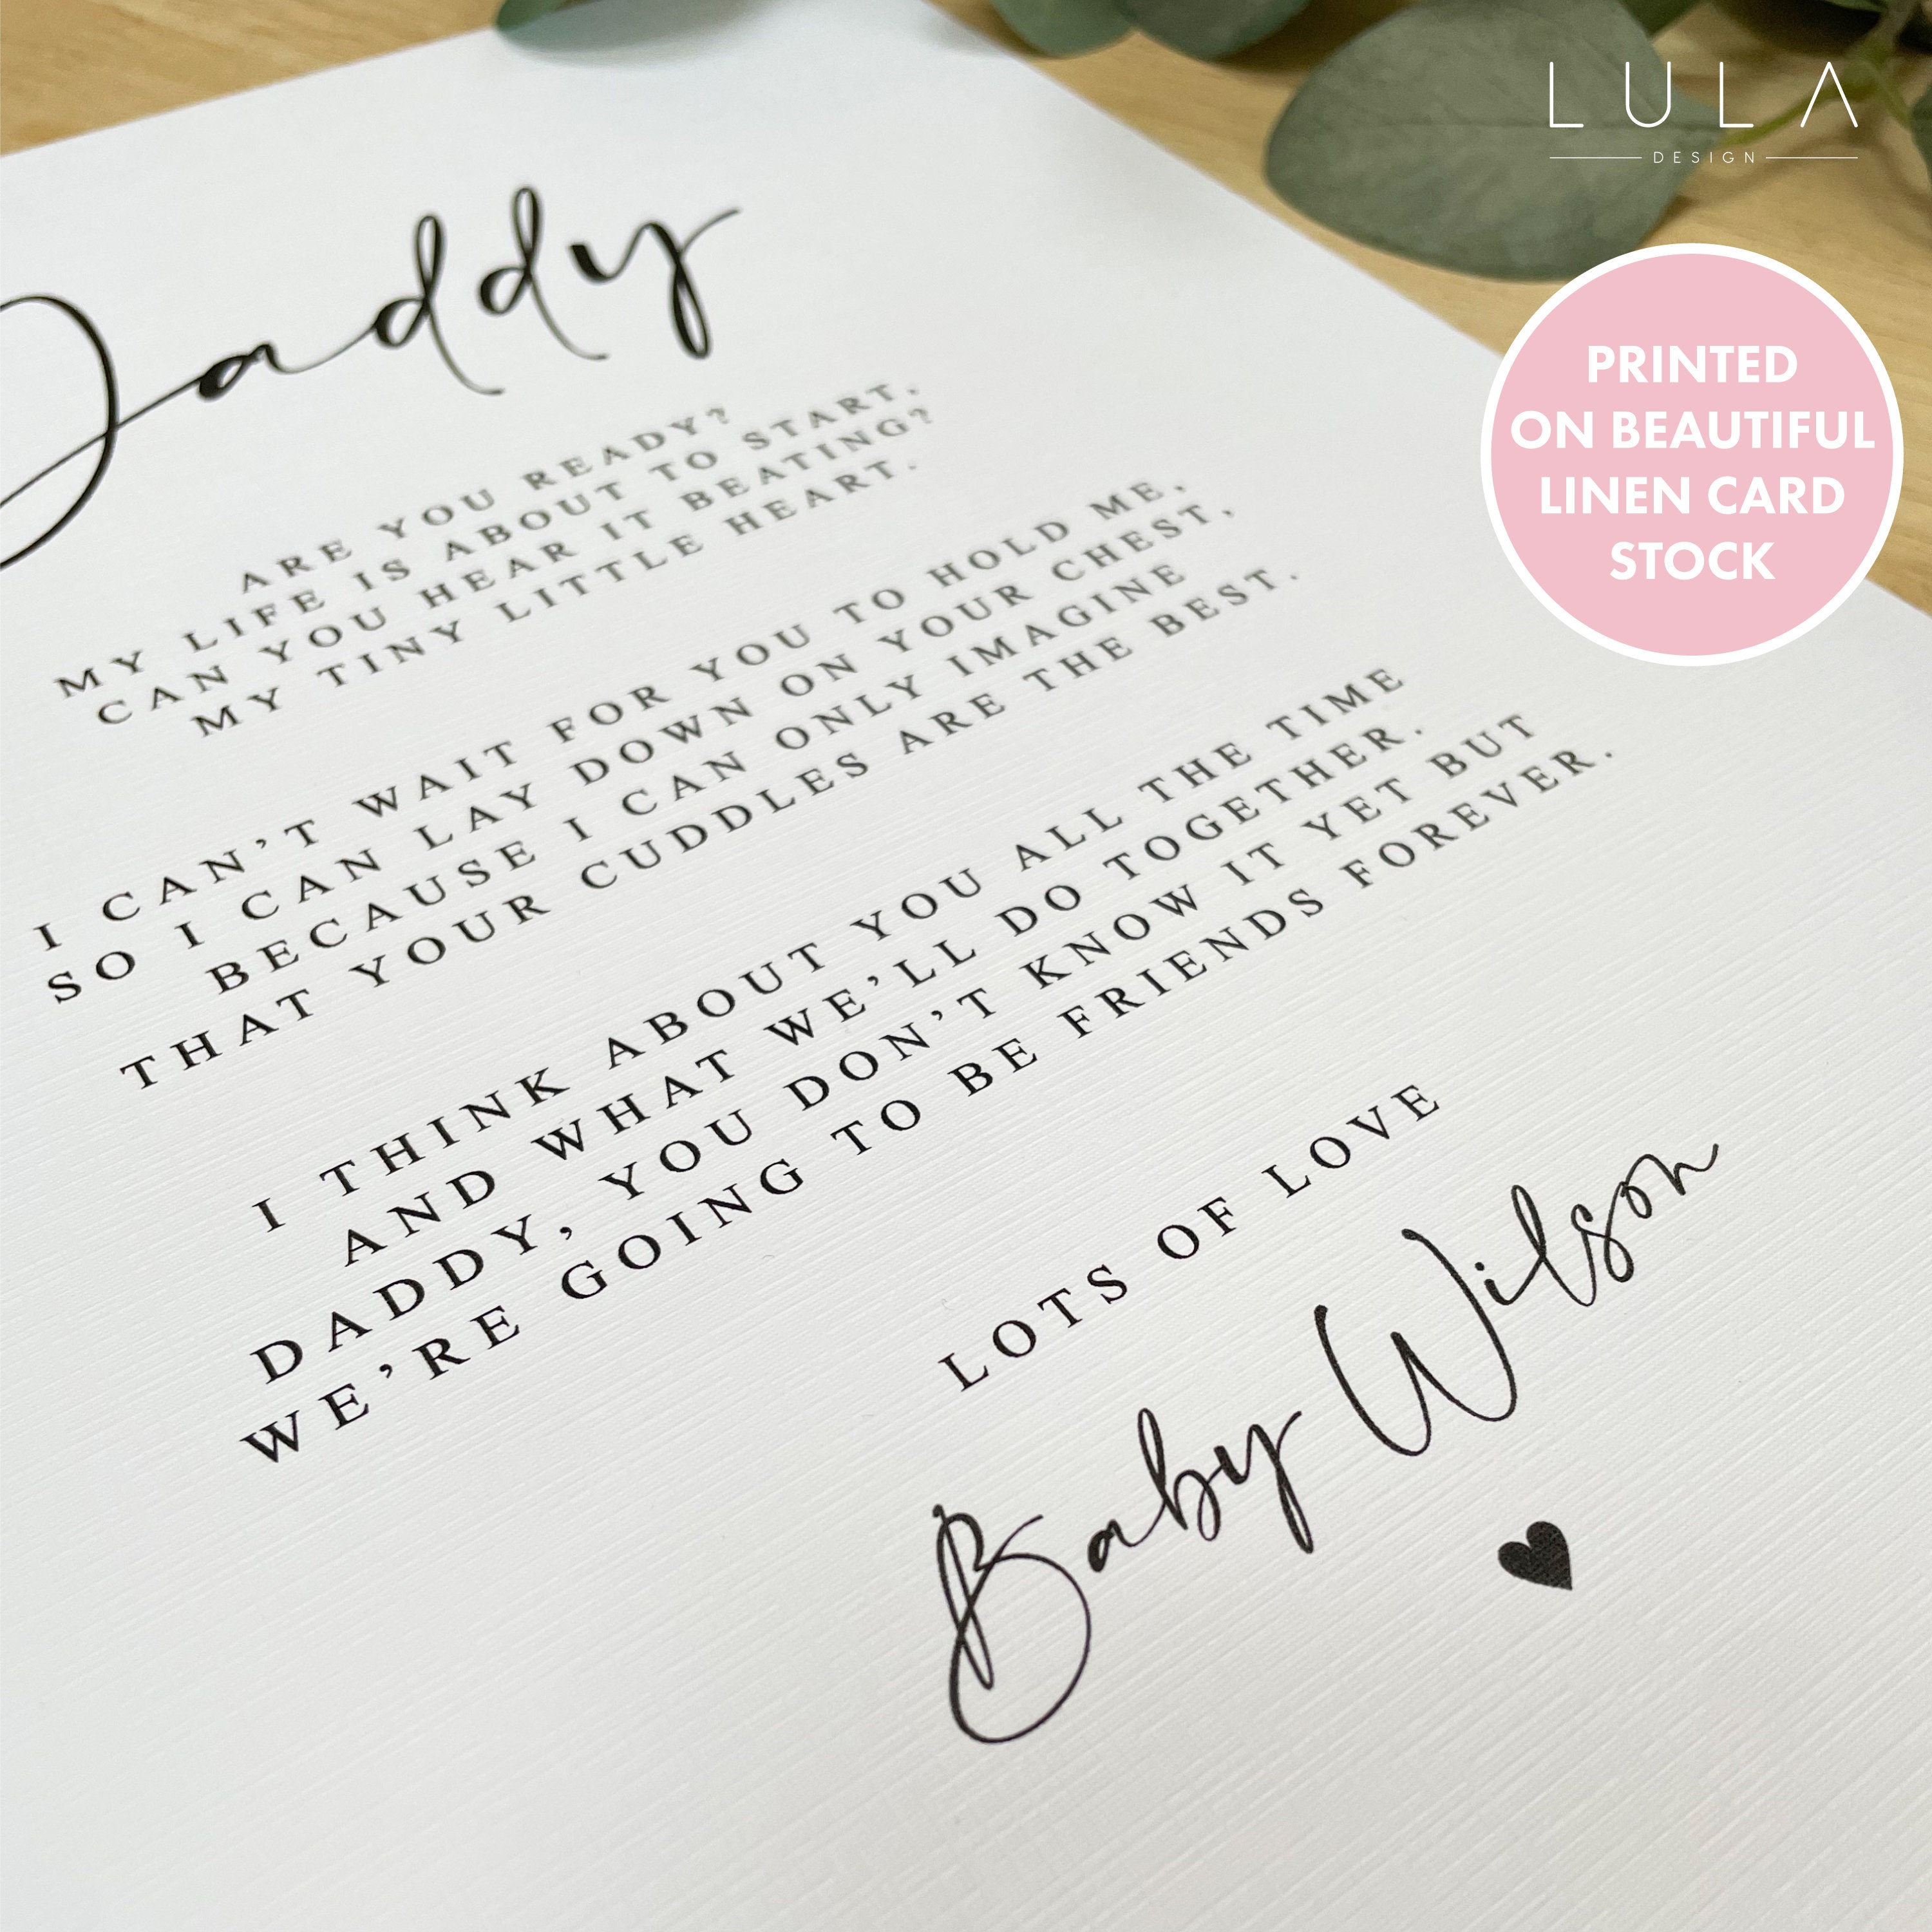 LULA
DESIGN
PRINTED
ON BEAUTIFUL
LINEN CARD
STOCK
Daddy
ARE YOU READY?
MY LIFE IS ABOUT TO START,
CAN YOU HEAR IT BEATING?
MY TINY LITTLE HEART.
I CAN’T WAIT FOR YOU TO HOLD ME,
SO I CAN LAY DOWN ON YOUR CHEST,
BECAUSE I CAN ONLY IMAGINE
THAT YOUR CUDDLES ARE THE BEST.
I THINK ABOUT YOU ALL THE TIME
AND WHAT WE’LL DO TOGETHER.
DADDY, YOU DON’T KNOW IT YET BUT
WE’RE GOING TO BE FRIENDS FOREVER.
LOTS OF LOVE
Baby Wilson